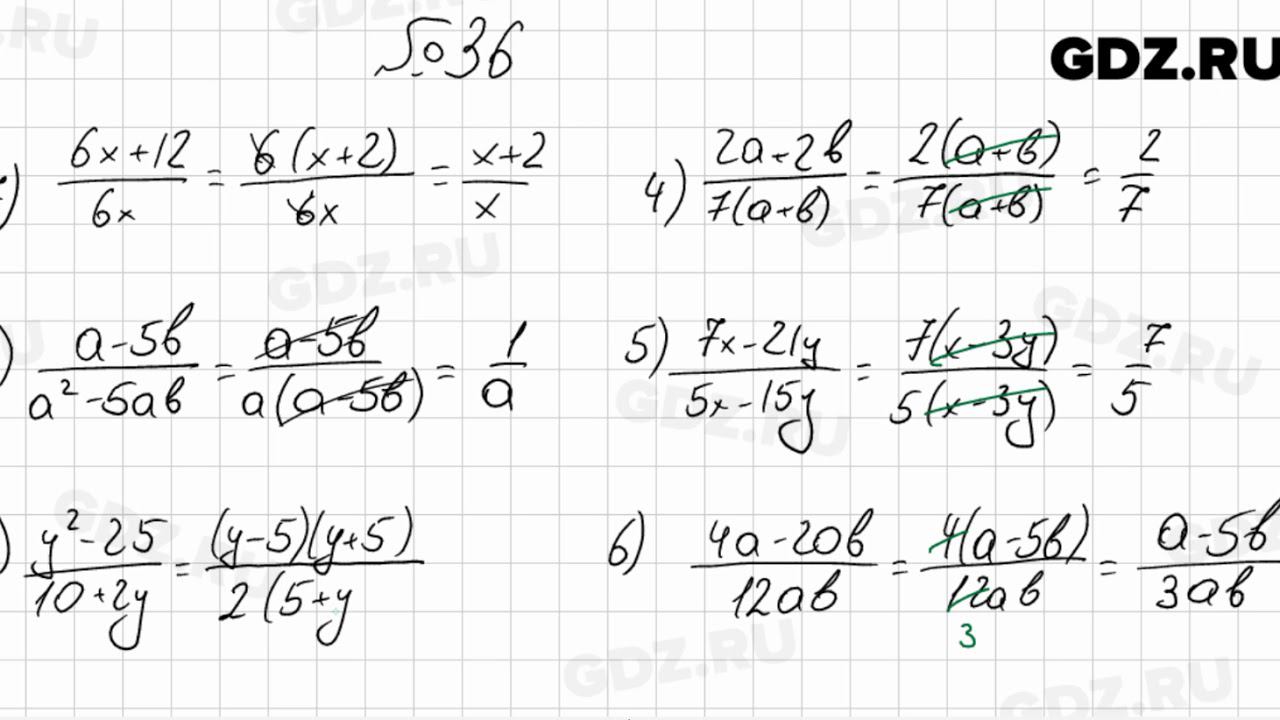 №36
GDZ.RU
) (6x+12)/(6x) = (6(x+2))/(6x) = (x+2)/x
4) (2a+2в)/(7(a+в)) = (2(a+в))/(7(a+в)) = 2/7
) (a-5в)/(a²-5aв) = (a-5в)/(a(a-5в)) = 1/a
5) (7x-21y)/(5x-15y) = (7(x-3y))/(5(x-3y)) = 7/5
) (y²-25)/(10+2y) = ((y-5)(y+5))/(2(5+y
6) (4a-20в)/(12aв) = (4(a-5в))/(12aв) = (a-5в)/(3aв)
3